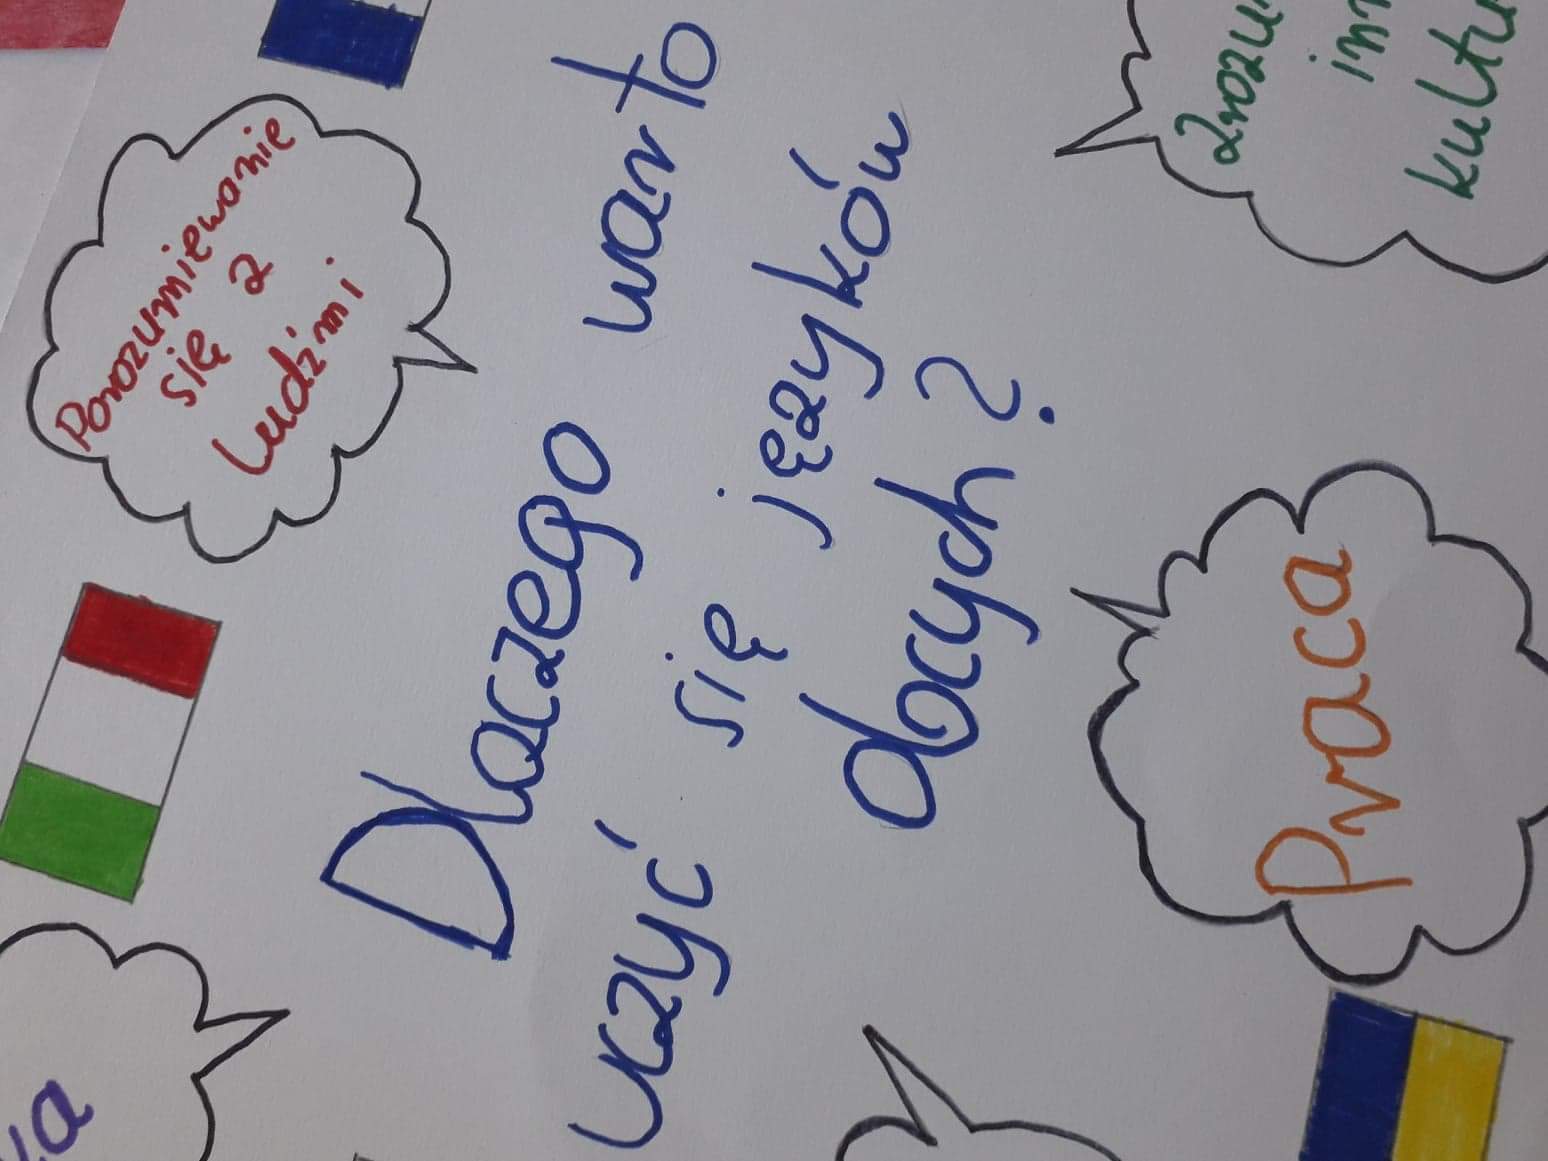 Porozumiewanie
się z
ludźmi
Dlaczego warto
uczyć się języków
obcych?
Praca
Zrozu
inn
kultu